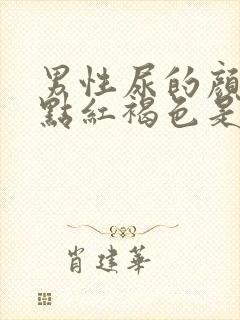 男性尿的顏
點紅褐色是
肖建華